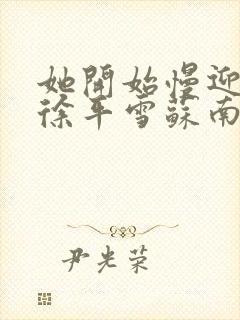 她開始慢迎
徐平雪蘇南
尹光荣